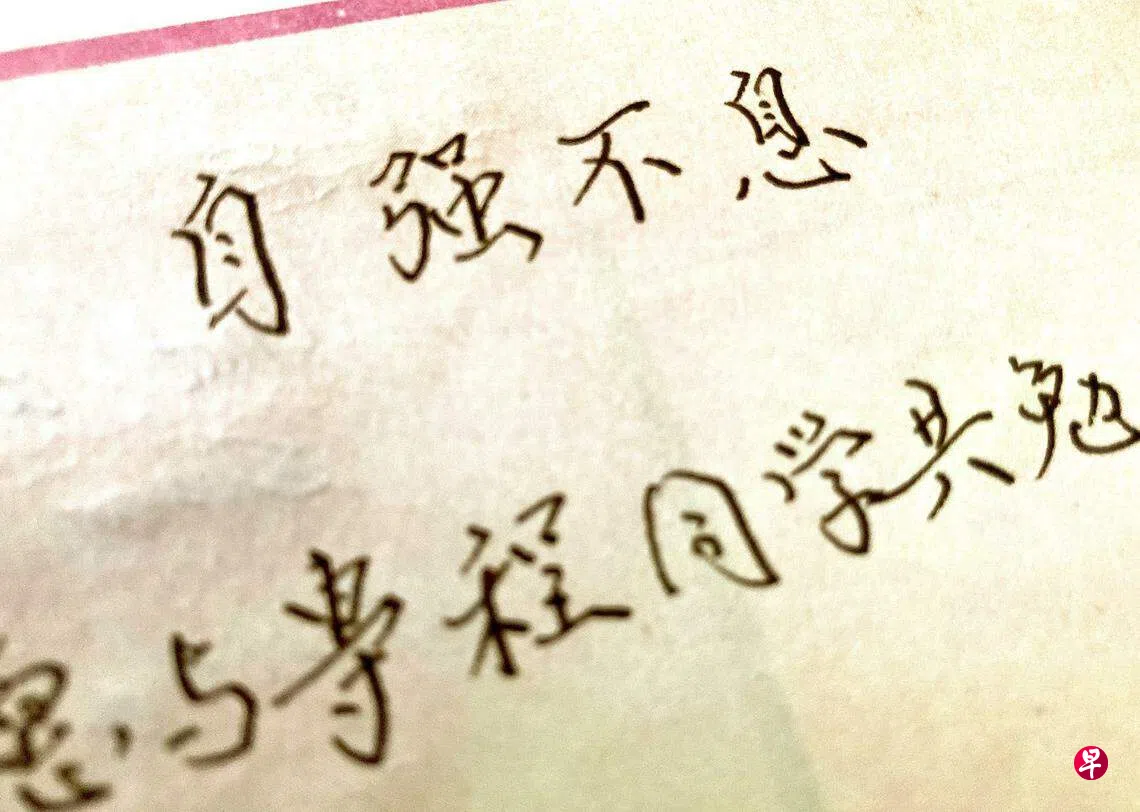 自强不息
与寿程同学共勉
早